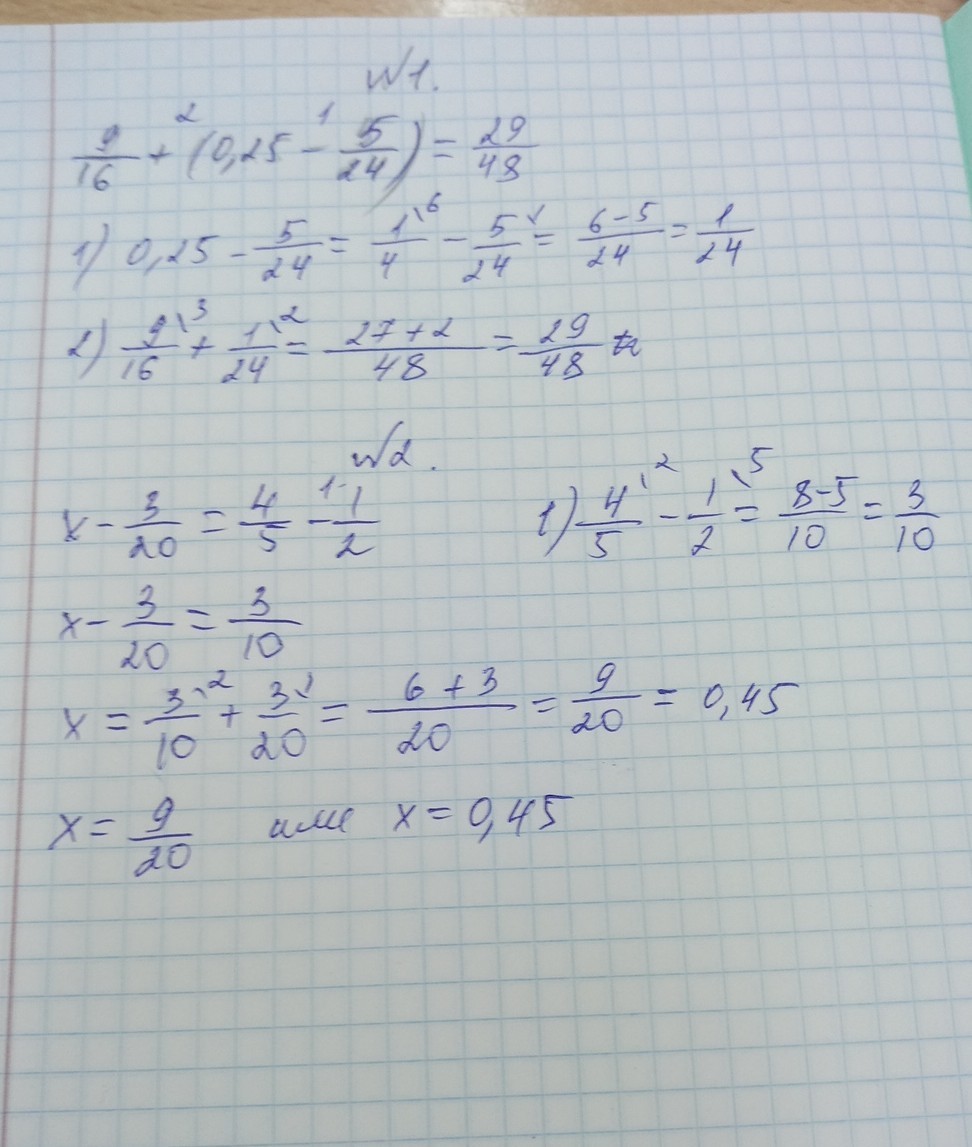 №1.
9/16 +² (0,25 -¹ 5/24) = 29/48
1) 0,25 - 5/24 = 1/4⁶ - 5/24¹ = (6-5)/24 = 1/24
2) 9/16³ + 1/24² = (27+2)/48 = 29/48
№2.
x - 3/20 = 4/5 -¹ 1/2
1) 4/5² - 1/2⁵ = (8-5)/10 = 3/10
x - 3/20 = 3/10
x = 3/10² + 3/20¹ = (6+3)/20 = 9/20 = 0,45
x = 9/20 или x = 0,45